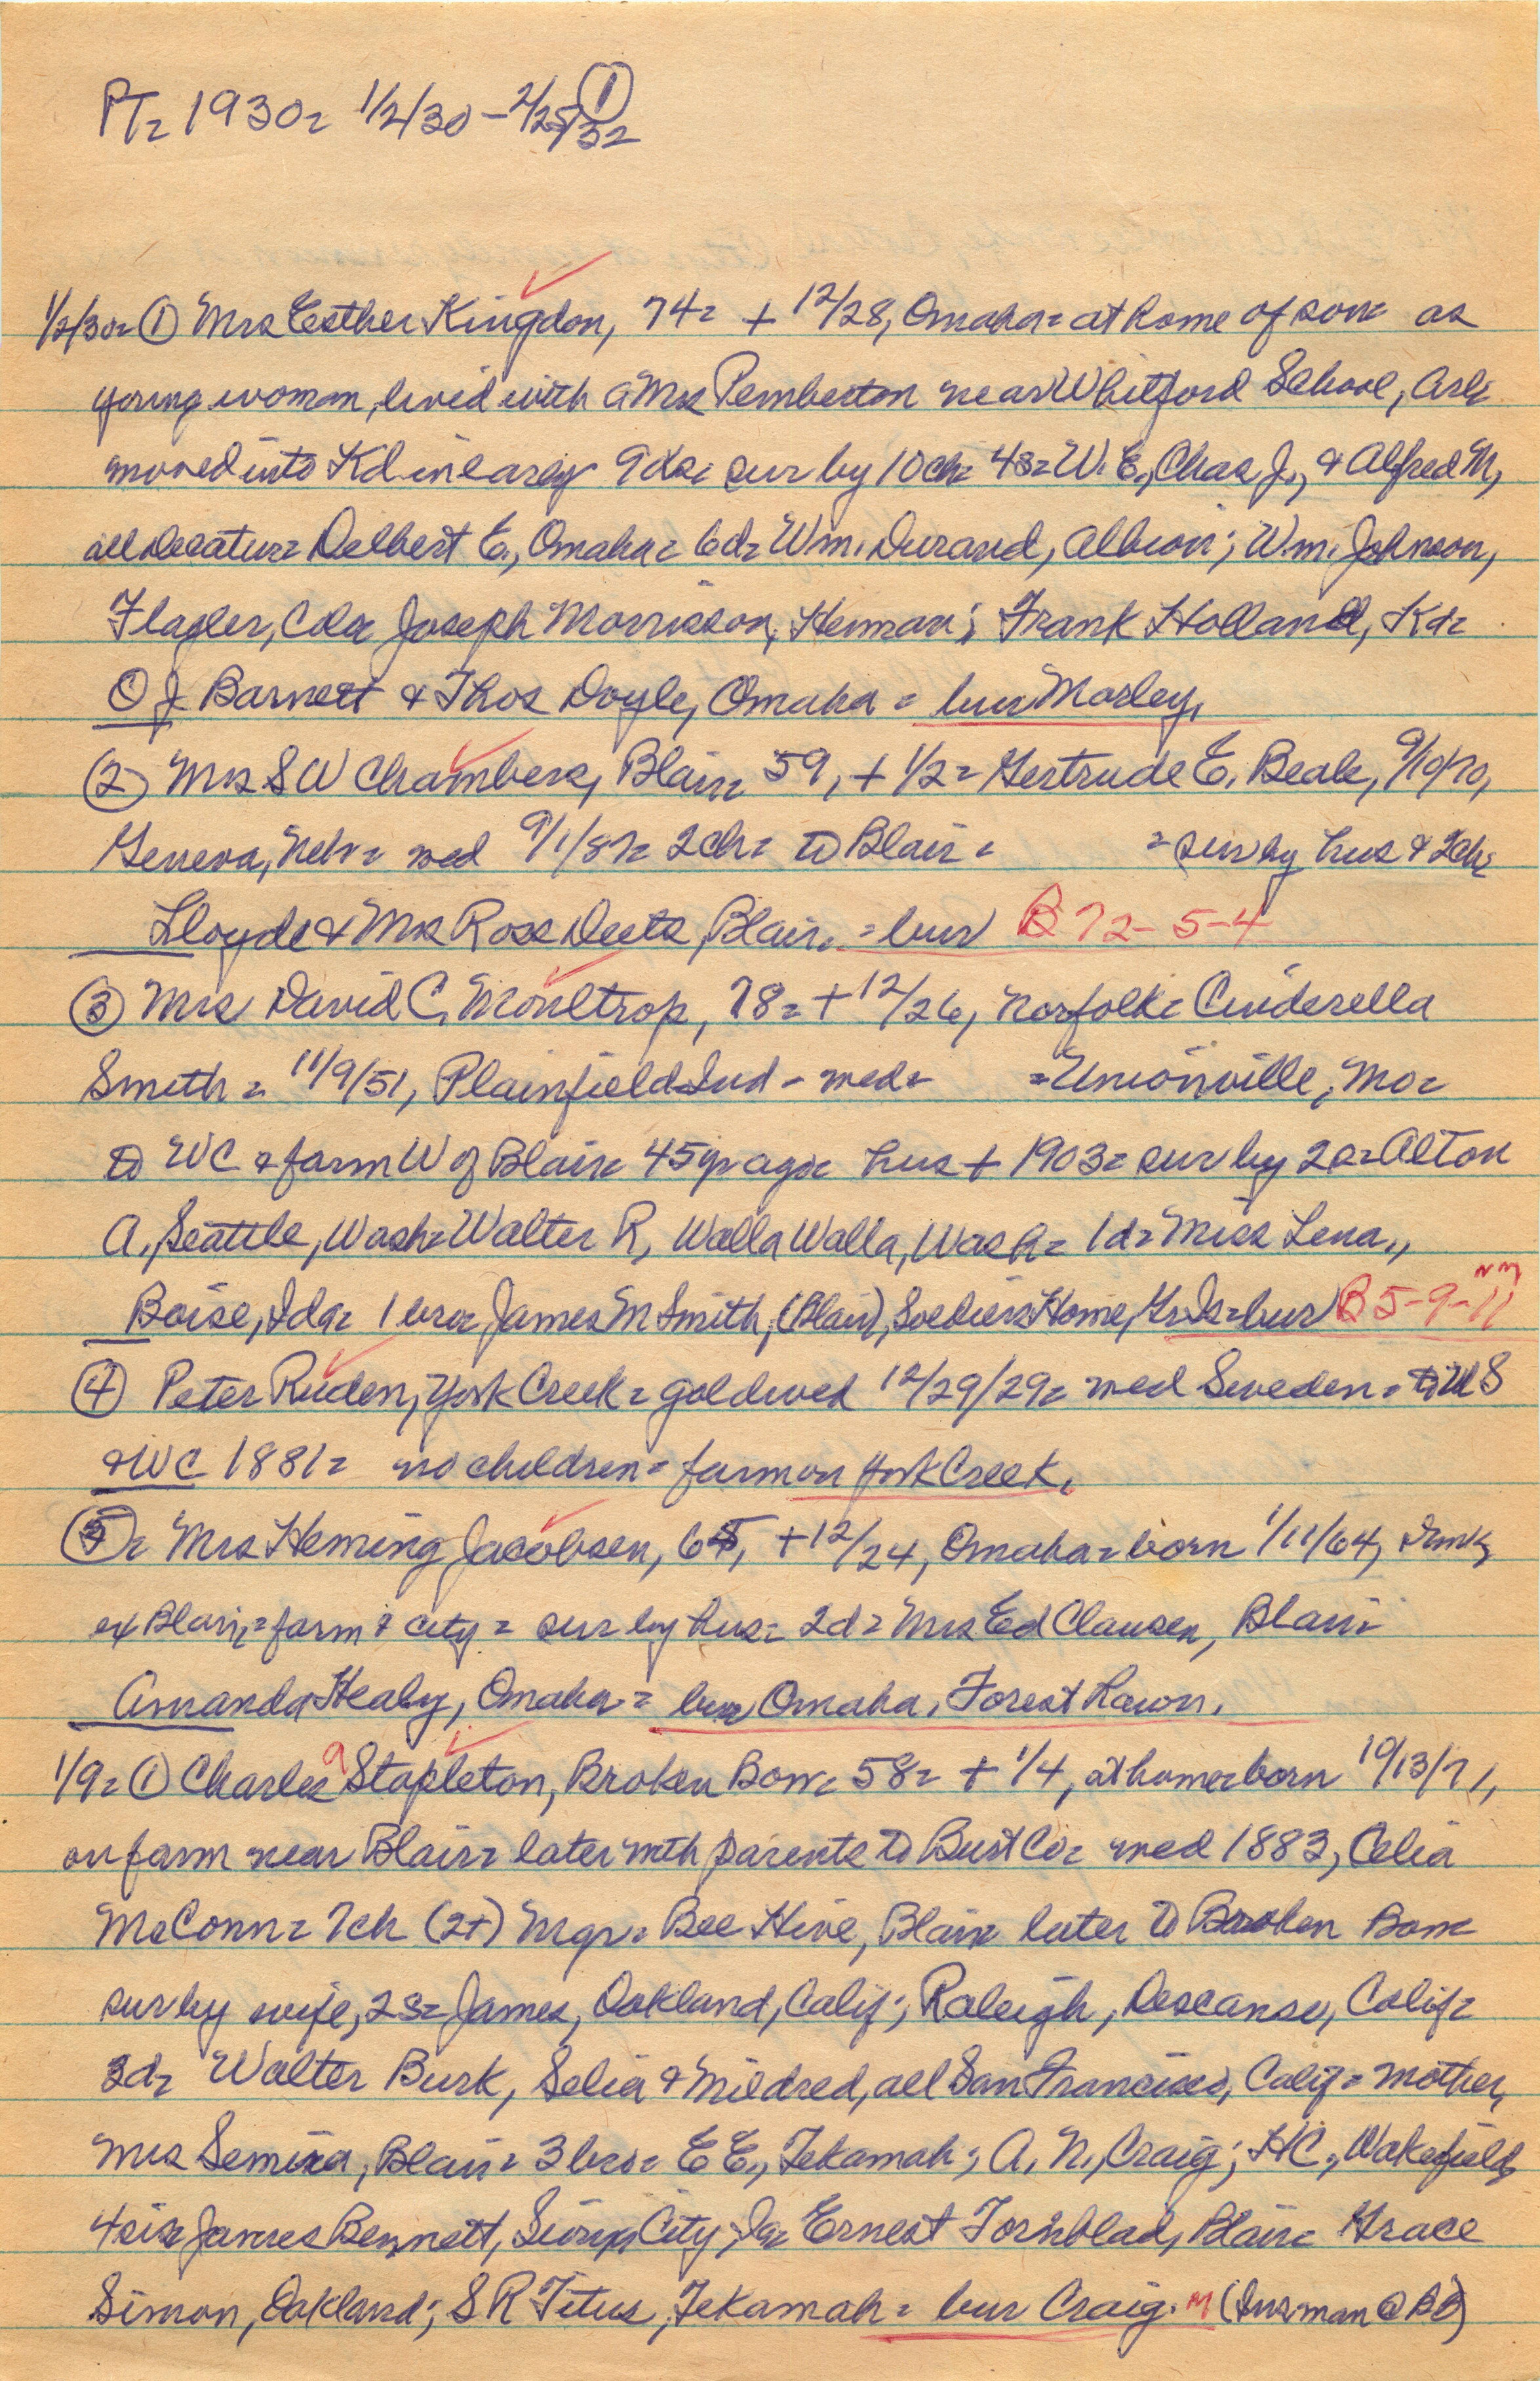 PT= 1930= 1/2/30 - 2/25/32 ①
1/2/30= ① Mrs Esther Kingdon, 74= + 12/28, Omaha= at home of son= as
young woman, lived with a Mrs Pemberton near Whitford School, Arl=
moved into Kd in early 90s= sur by 10 ch= 4s= W. E., Chas J., & Alfred M,
all Decatur= Delbert E., Omaha= 6d= Wm. Durand, Albion; Wm. Johnson,
Flagler, Colo= Joseph Morrisson, Herman; Frank Holland, Kd=
O J Barnett & Thos Doyle, Omaha = bur Morley,
② Mrs S W Chambers, Blair= 59, + 1/2= Gertrude E. Beale, 9/10/70,
Geneva, Neb= med 9/1/87= 2ch= to Blair= = sur by hus & 2ch=
Lloyde & Mrs Ross Deets, Blair. = bur B 72-5-4
③ Mrs David C. Moultrop, 78= + 12/26, Norfolk= Cinderella
Smith= 11/9/51, Plainfield Ind - med= = Unionville, Mo=
to WC & farm W of Blair= 45 yr ago= hus + 1903= sur by 2s= Alton
A., Seattle, Wash= Walter R, Walla Walla, Wash= 1d= Miss Lena,,
Boise, Ida= 1 bro= James M Smith, (Blair), Soldiers Home, Gr Is= bur B 5-9-11
④ Peter Ruden, York Creek= gold wed 12/29/29= med Sweden= to U S
& WC 1881= no children= farm on York Creek,
⑤= Mrs Heming Jacobsen, 65, + 12/24, Omaha= born 1/11/64, Dmk,
ex Blair,= farm & city = sur by hus= 2d= Mrs Ed Clausen, Blair=
Amanda Healy, Omaha= bur Omaha, Forest Lawn,
1/9= ① Charles A Stapleton, Broken Bow= 58= + 1/4, at home= born 10/13/71,
on farm near Blair= later with parents to Burt Co= med 1883, Celia
McConn= 7ch (2+) Mgr= Bee Hive, Blair= later to Broken Bow=
sur by wife, 2s= James, Oakland, Calif; Raleigh, Descanso, Calif=
3d= Walter Burk, Selia & Mildred, all San Francisco, Calif= mother,
Mrs Semira, Blair= 3 bro= E E., Tekamah; A. N., Craig; HC., Wakefield,
4 sis= James Bennett, Sioux City, Ia= Ernest Fornblad, Blair= Grace
Simon, Oakland; S R Titus, Tekamah= bur Craig. M (Ins. man @ BB)